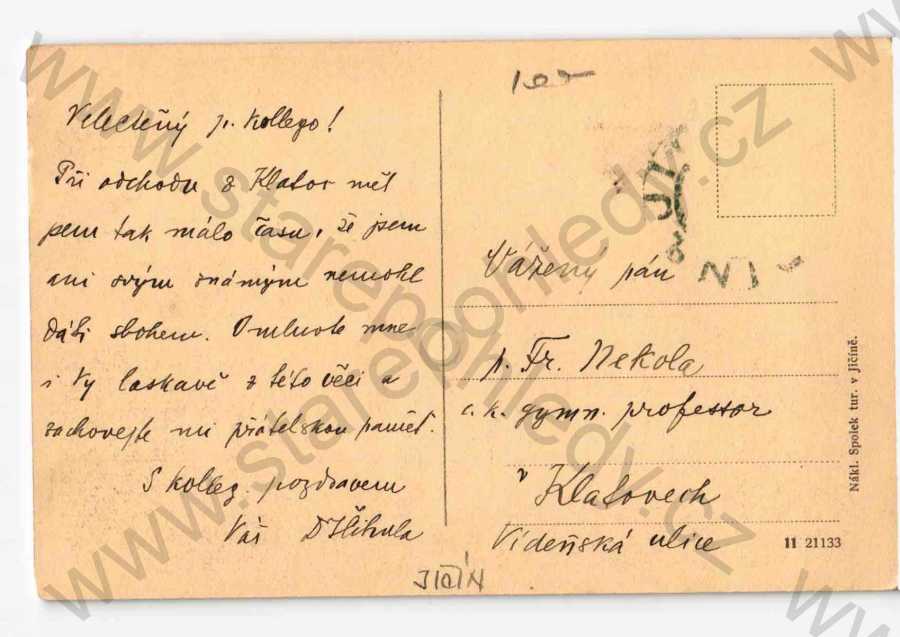 Velectěný p. kollego!
Při odchodu z Klatov měl
jsem tak málo času, že jsem
ani svým známým nemohl
dáti sbohem. Omluvte mne
i Vy laskavě z této věci a
zachovejte mi přátelskou paměť.
S kolleg. pozdravem
Váš
Vážený pán
p. Fr. Nekola
c. k. gymn. professor
v Klatovech
Vídeňská ulice
Nákl. Spolek tur. v Jičíně.
11 21133
JIČÍN
www.starepohledy.cz
www.starepohledy.cz